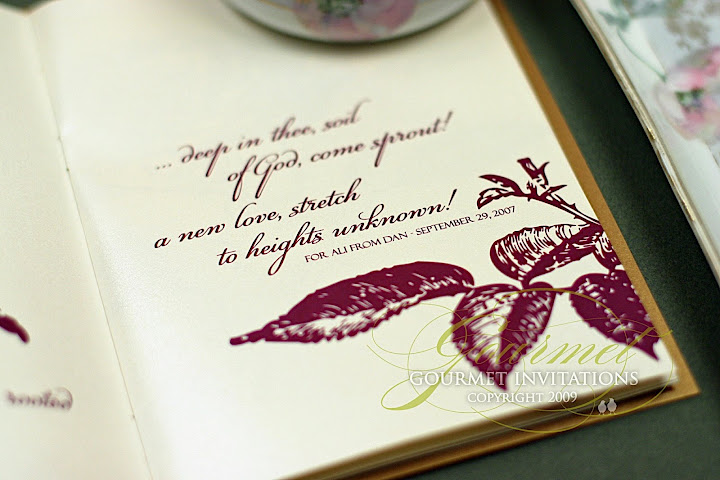 rooted
... deep in thee, soil
of God, come sprout!
a new love, stretch
to heights unknown!
FOR ALI FROM DAN - SEPTEMBER 29, 2007
Gourmet
GOURMET INVITATIONS
COPYRIGHT 2009